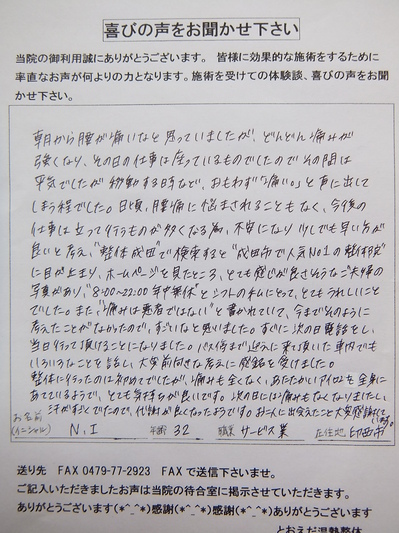 喜びの声をお聞かせ下さい
当院の御利用誠にありがとうございます。 皆様に効果的な施術をするために
率直なお声が何よりの力となります。施術を受けての体験談、喜びの声をお聞
かせ下さい。
朝から腰が痛いなと思っていましたが、どんどん痛みが
強くなり、その日の仕事は座っているものでしたのでその間は
平気でしたが移動する時など、おもわず「痛い。」と声に出して
しまう程でした。日頃、腰痛に悩まされることもなく、今後の
仕事は立って行うものが多くなる為、不安になり少しでも早い方が
良いと考え、"整体 成田"で検索すると"成田市で人気No1の整体院"
に目が止まり、ホームページを見たところ、とても感じが良さそうなご夫婦の
写真があり、"8:00~22:00 年中無休"とシフトの私にとって、とてもうれしいこと
でした。また、"痛みは悪者ではない"と書かれていて、今までそのように
考えたことがなかったので、すごいなと思いました。すぐに次の日電話をし、
当日行って頂けることになりました。バス停まで迎えに来て頂いた車内でも
いろいろなことを話し、大変前向きな考えに感銘を受けました。
整体に行ったのは初めてでしたが、痛みも全くなく、あたたかいアイロンも全身に
あてているようで、とても気持ちが良いです。次の日には痛みもなくなりましたし、
汗がすぐでたので、代謝が良くなったようです。お二人に出会えたこと大変感謝して
います。
お名前(イニシャル) N.I 年齢 32 職業 サービス業 ご住地 印西市
送り先 FAX 0479-77-2923 FAXで送信下さいませ。
ご記入いただきましたお声は当院の待合室に掲示させていただきます。
ありがとうございます(*^_^*)感謝(*^_^*)感謝(*^_^*)ありがとうございます
とおえだ温熱整体